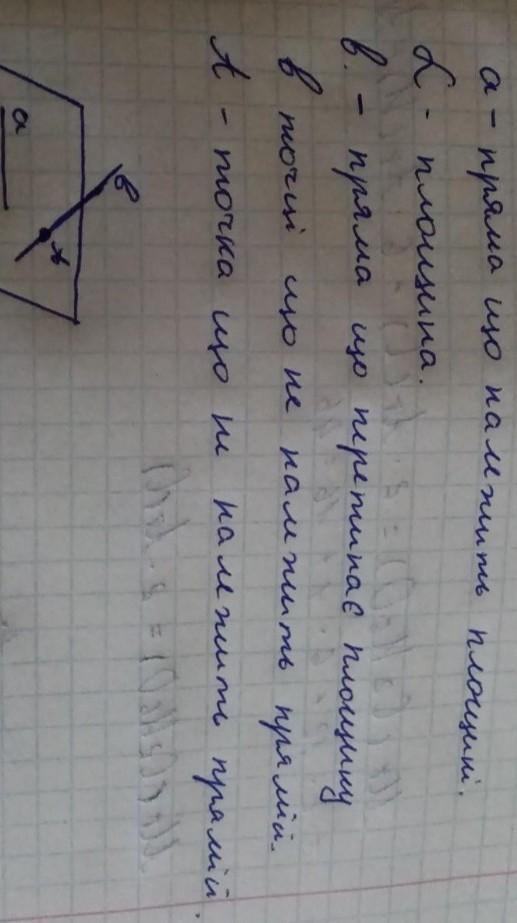 a - пряма що належить площині.
α - площина.
в. - пряма що перетинає площину
в точці що не належить прямій.
A - точка що не належить прямій.
a
в
A